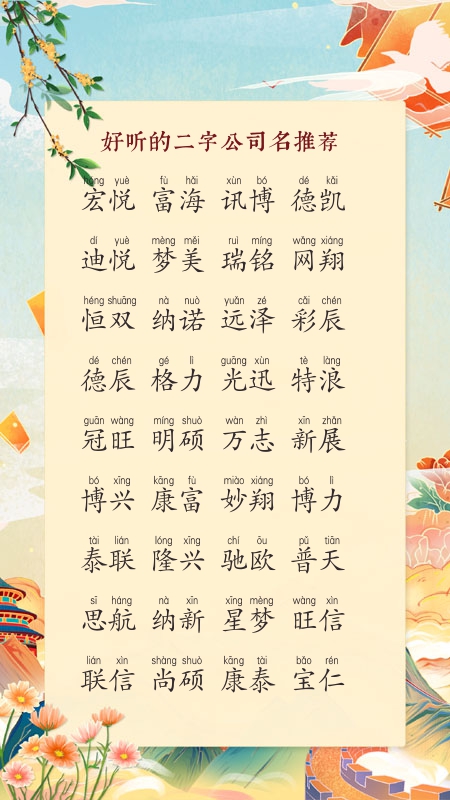 好听的二字公司名推荐
hóng yuè fù hǎi xùn bó dé kǎi
宏悦 富海 讯博 德凯
dí yuè mèng měi ruì míng wǎng xiáng
迪悦 梦美 瑞铭 网翔
héng shuāng nà nuò yuǎn zé cǎi chén
恒双 纳诺 远泽 彩辰
dé chén gé lì guāng xùn tè làng
德辰 格力 光迅 特浪
guān wàng míng shuò wàn zhì xīn zhǎn
冠旺 明硕 万志 新展
bó xīng kāng fù miào xiáng bó lì
博兴 康富 妙翔 博力
tài lián lóng xīng chí ōu pǔ tiān
泰联 隆兴 驰欧 普天
sī háng nà xīn xīng mèng wàng xìn
思航 纳新 星梦 旺信
lián xìn shàng shuò kāng tài bǎo rén
联信 尚硕 康泰 宝仁